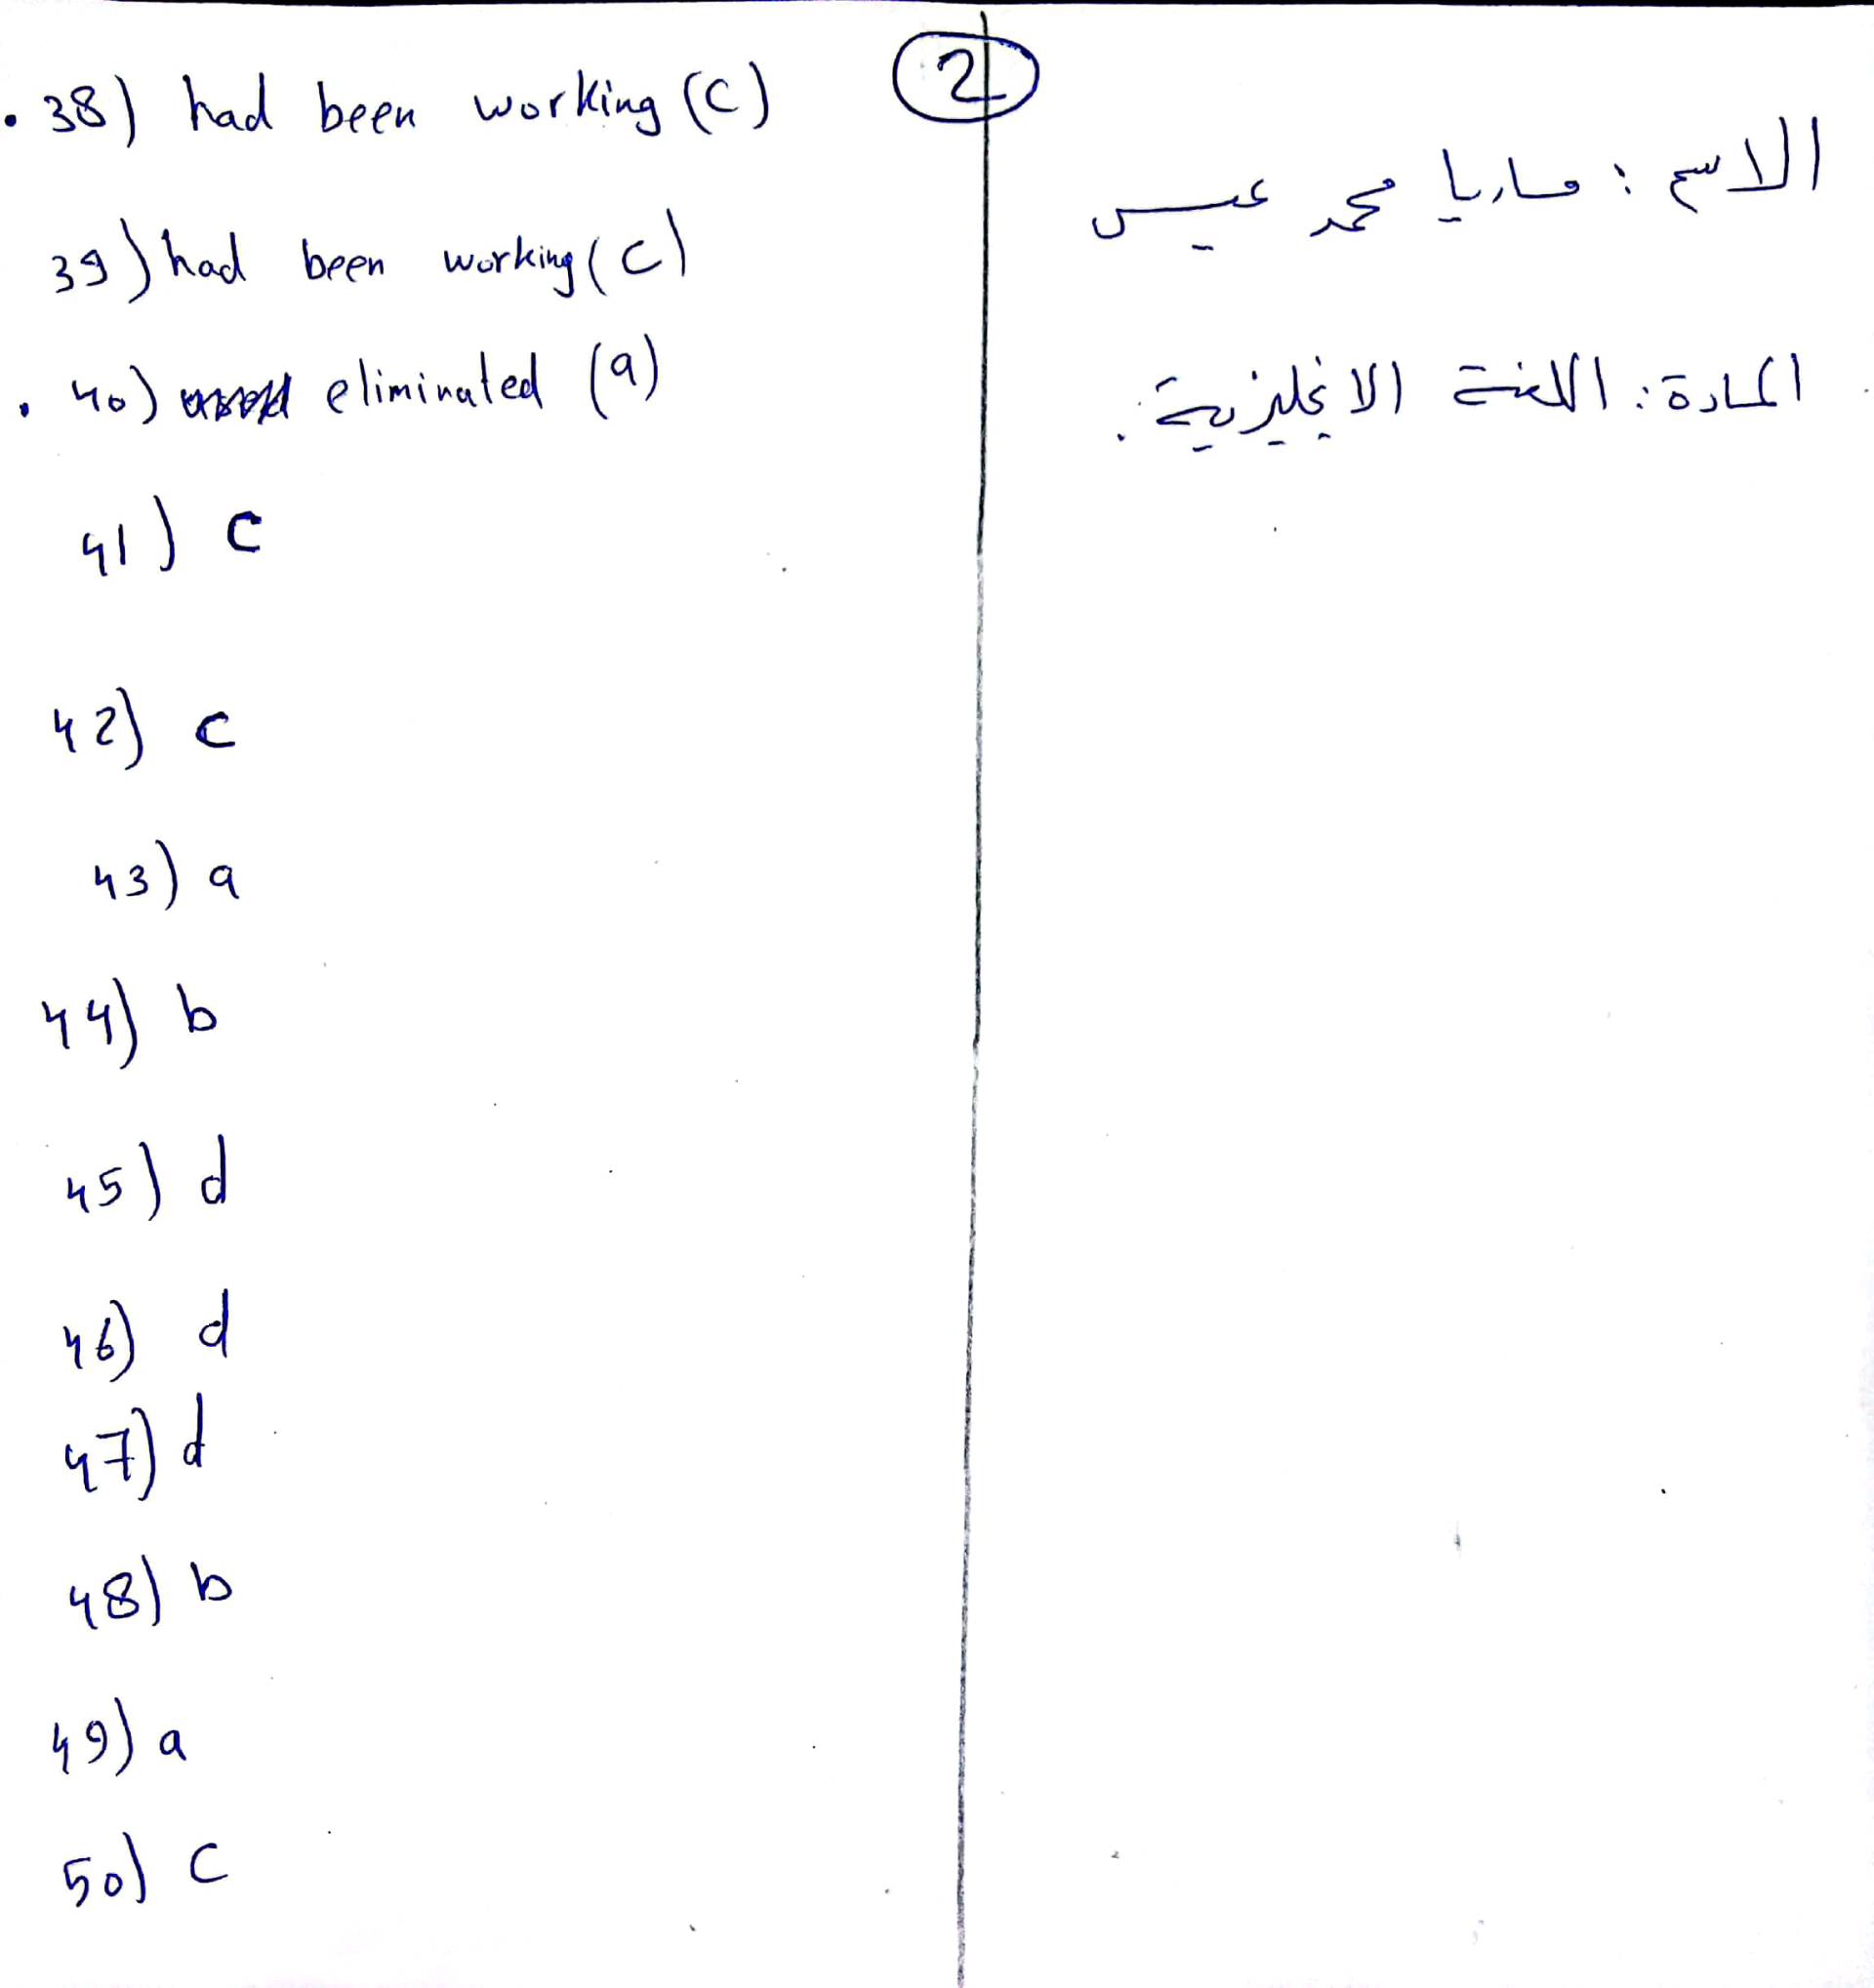 2
38) had been working (c)
39) had been working (c)
40) eliminated (a)
41) c
42) c
43) a
44) b
45) d
46) d
47) d
48) b
49) a
50) c
الاسم : ماريا محمد عيسى
المادة : اللغة الانجليزية .